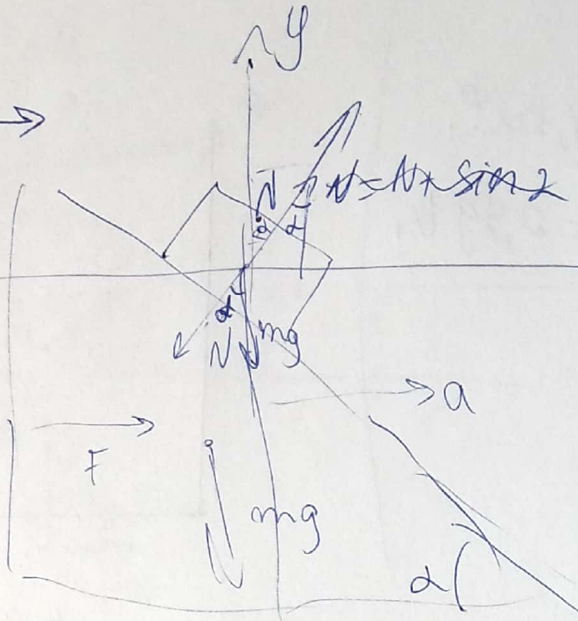 y
N
N = N * sin α
α
α
α
N
mg
a
F
mg
α